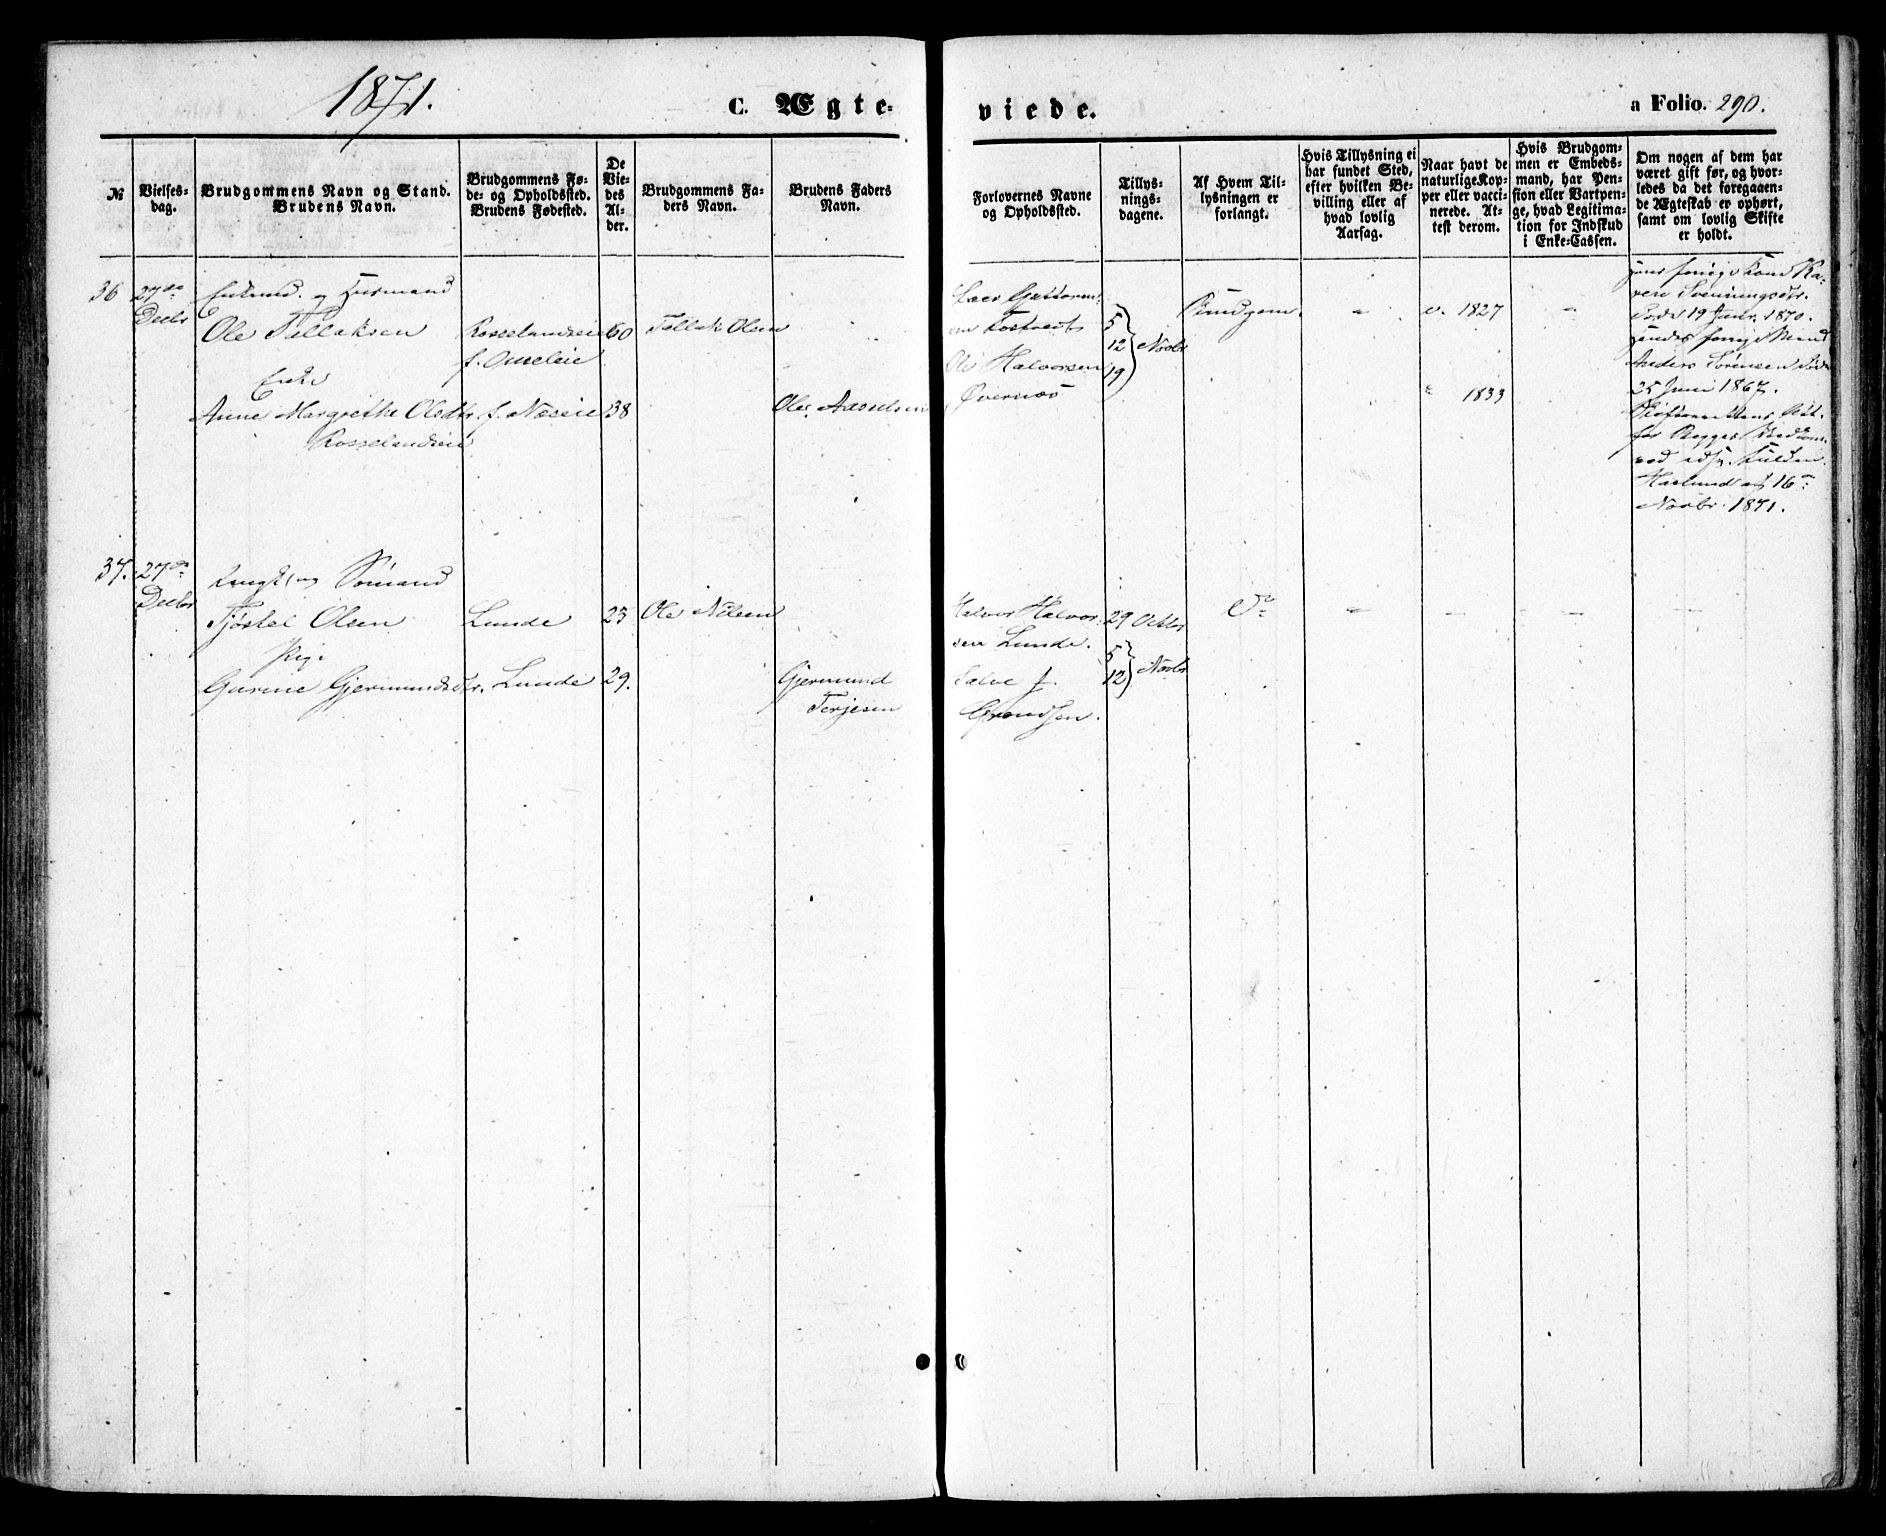 1871.
C. Ægte-
viede.
a Folio. 290.
№
Vielses-
dag.
Brudgommens Navn og Stand.
Brudens Navn.
Brudgommens Fø-
de- og Opholdssted.
Brudens Fødested.
De
Vie-
des
Al-
der.
Brudgommens Fa-
ders Navn.
Brudens Faders
Navn.
Forlovernes Navne
og Opholdssted.
Tillys-
nings-
dagene.
Af Hvem Til-
lysningen er
forlangt.
Hvis Tillysning ei
har fundet Sted,
efter hvilken Be-
villing eller af
hvad lovlig
Aarsag.
Naar havt de
naturlige Kop-
per eller vacci-
nerede. At-
test derom.
Hvis Brudgom-
men er Embeds-
mand, har Pen-
sion eller Vartpen-
ge, hvad Legitima-
tion for Indskud
i Enke-Cassen.
Om nogen af dem har
været gift før, og hvor-
ledes da det foregaaen-
de Ægteskab er ophørt,
samt om lovlig Skifte
er holdt.
36
27de
Decbr
Enkemd. og Huusmand
Ole Tallaksen
Enke
Anne Margrethe Olsdtr
Rosselandseie
Rosselandseie
f. Næseie
60
38
Tallak Olsen
Ole
Ole Halvorsen
Øvernæs
5
12
19
Novbr
Brudgom
v. 1827
" 1833
hans forrige Kone Ka-
ren Svenningsdtr.
døde 19 Janr. 1870.
hendes forrige Mand
Anders Sørensen døde
25 Juni 1867.
16de
Novbr 1871.
37.
27de
Decbr
Ungk. og Sømand
Tjøstel Olsen
Pige
Gurine Gjermundsdtr.
Lunde
Lunde
23
29.
Ole Nilsen
Gjermund
Terjesen
Halvor Halvor-
sen Lunde.
Salve J.
Grundsen.
29 Octbr
5
12
Novbr
Do